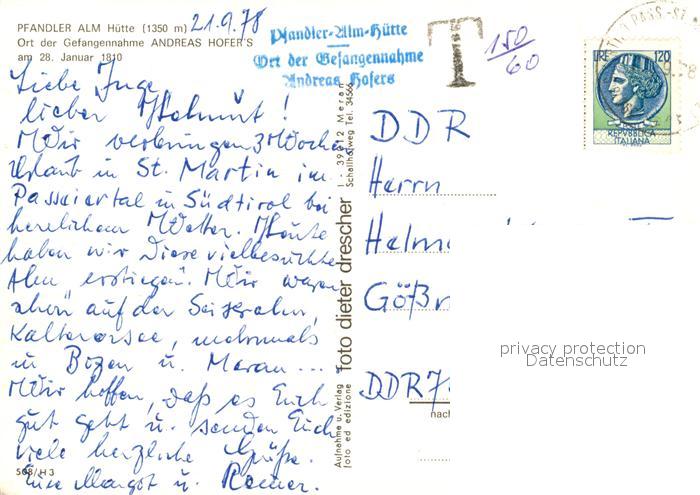 PFANDLER ALM Hütte (1350 m) 21.9.78
Ort der Gefangennahme ANDREAS HOFER'S
am 28. Januar 1810
Pfandler-Alm-Hütte
Ort der Gefangennahme
Andreas Hofers
T
150
60
LIRE 120
REPVBBLICA
ITALIANA
Liebe Inge,
lieber Helmut!
Wir verbringen 3 Wochen
Urlaub in St. Martin im
Passeiertal in Südtirol bei
herrlichem Wetter. Heute
haben wir diese vielbesuchte
Alm "erstiegen". Wir waren
schon auf der Seiseralm,
Kalterersee, mehrmals
in Bozen u. Meran....
Wir hoffen, daß es Euch
gut geht u. senden Euch
viele herzliche Grüße.
Eure Margot u. Reiner.
508/H3
Aufnahme u. Verlag
foto ed edizione
foto dieter drescher
I - 39012 Meran
DDR
Herrn
Helm
Göß
DDR 7
nach
privacy protection
Datenschutz